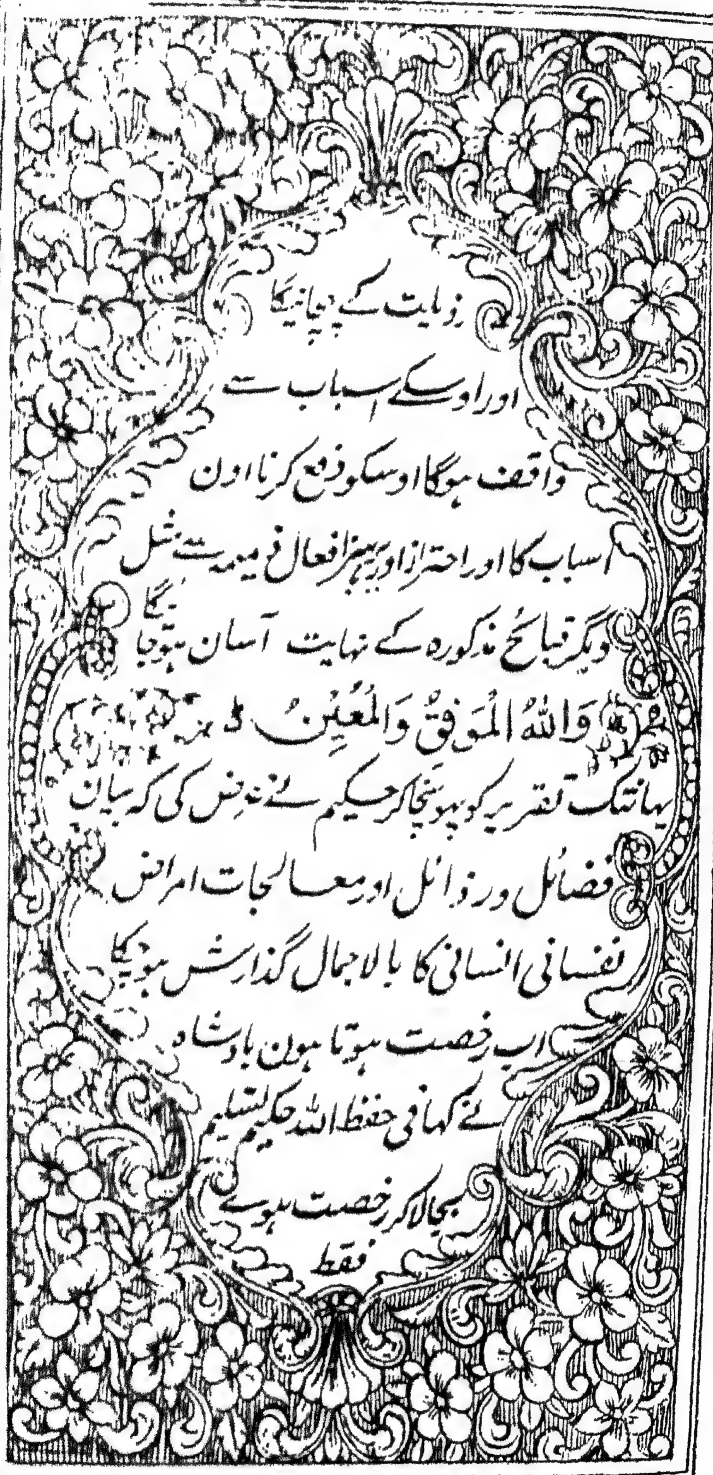 رذیلت کے پہچانیگا
اور اوسکے اسباب سے
واقف ہوگا اوسکو دفع کرنا اون
اسباب کا اور احتراز اور پرہیز افعال ذمیمہ سے مثل
دیگر قبائح مذکورہ کے نہایت آسان ہوجائیگا
وَاللّٰهُ الْمُوَفِّقُ وَالْمُعِيْنُ
یہانتک تقریر کو پہونچا کر حکیم نے عرض کی کہ بیان
فضائل ور ذائل اور معالجات امراض
نفسانی انسانی کا بالاجمال گذارش ہوچکا
اب رخصت ہوتا ہون بادشاہ
نے کہا فی حفظ اللہ حکیم تسلیم
بجالاکر رخصت ہوے
فقط